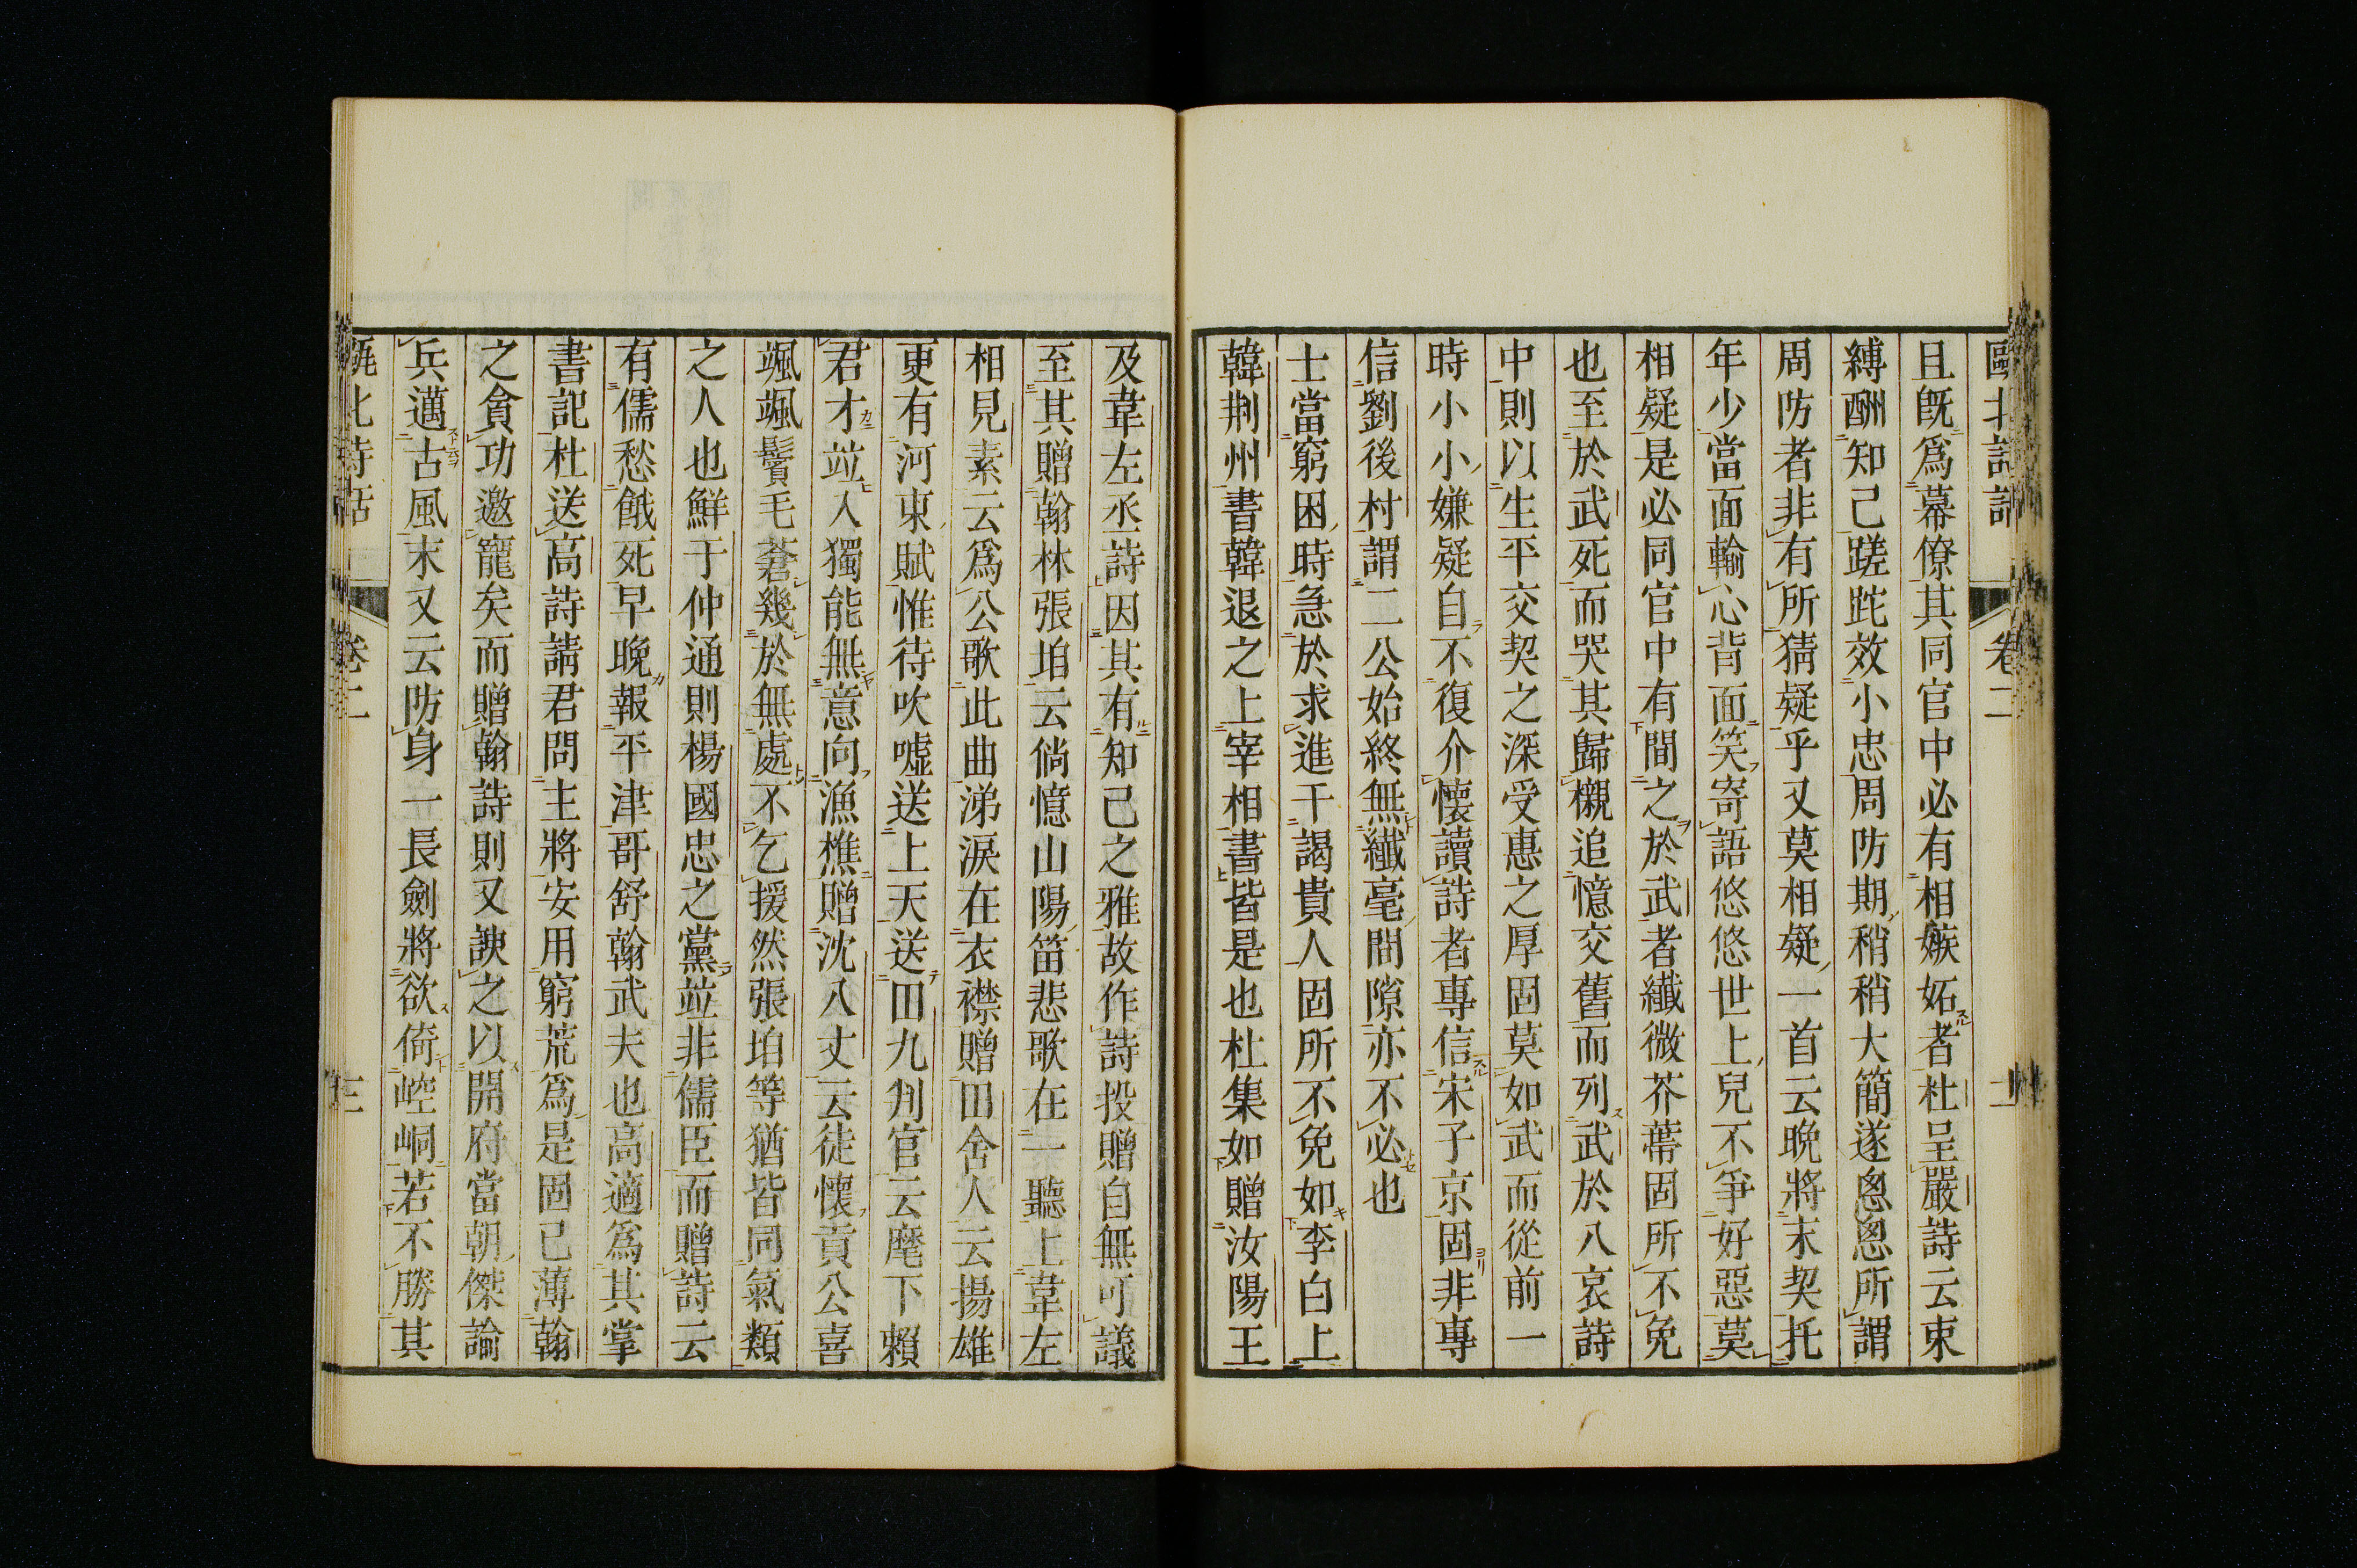 甌北詩話 卷二 二
且既爲幕僚其同官中必有相嫉妬者杜呈嚴詩云束
縛酬知己蹉跎效小忠周防期稍稍大簡遂悤悤所謂
周防者非有所猜疑乎又莫相疑一首云晚將末契托
年少當面輸心背面笑寄語悠悠世上兒不爭好惡莫
相疑是必同官中有間之於武者纖微芥蔕固所不免
也至於武死而哭其歸櫬追憶交舊而列武於八哀詩
中則以生平交契之深受惠之厚固莫如武而從前一
時小小嫌疑自不復介懷讀詩者專信宋子京固非專
信劉後村謂二公始終無纖毫間隙亦不必也
士當窮困時急於求進干謁貴人固所不免如李白上
韓荆州書韓退之上宰相書皆是也杜集如贈汝陽王
及韋左丞詩因其有知己之雅故作詩投贈自無可議
至其贈翰林張垍云倘憶山陽笛悲歌在一聽上韋左
相見素云爲公歌此曲涕淚在衣襟贈田舍人云揚雄
更有河東賦惟待吹噓送上天送田九判官云麾下賴
君才竝入獨能無意向漁樵贈沈八丈云徒懷貢公喜
颯颯鬢毛蒼幾於無處不乞援然張垍等猶皆同氣類
之人也鮮于仲通則楊國忠之黨竝非儒臣而贈詩云
有儒愁餓死早晚報平津哥舒翰武夫也高適爲其掌
書記杜送高詩請君問主將安用窮荒爲是固已薄翰
之貪功邀寵矣而贈翰詩則又諛之以開府當朝傑論
兵邁古風末又云防身一長劍將欲倚崆峒若不勝其
甌北詩話 卷二 三